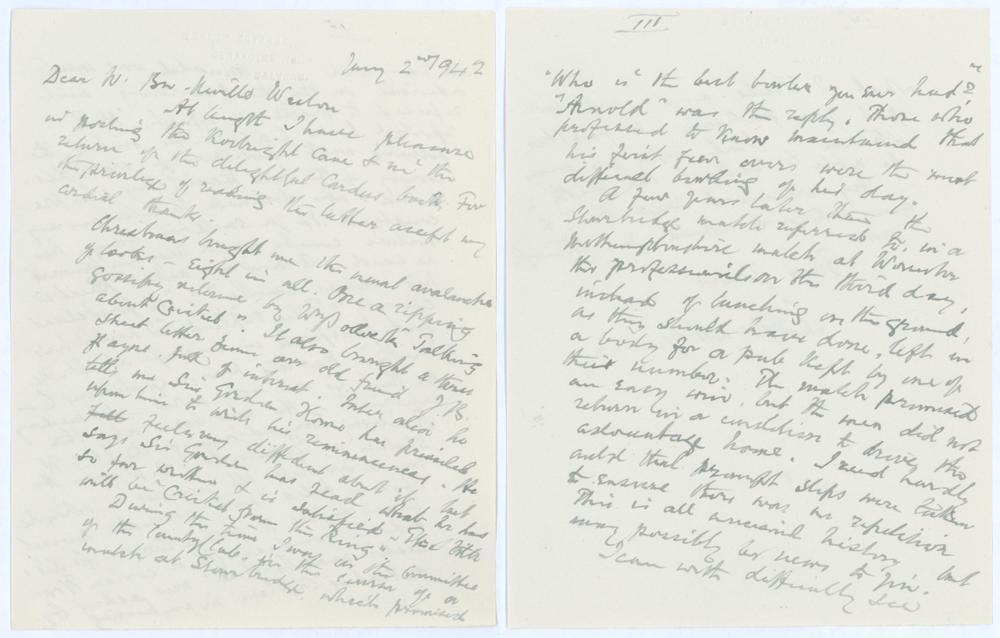 Jany 2nd 1942
Dear W. Bro. Neville Weston
At length I have pleasure
in posting the Kortright Cane & in the
return of the delightful Cardus book. For
the privilege of reading the latter accept my
cordial thanks.
Christmas brought me the usual avalanche
of books - eight in all. One a ripping
gossipy volume by "Talking
about Cricket". It also brought a three
sheet letter from our old friend J.B.
Payne. Full of interest. Inter alia he
tells me Sir Gordon Home has prevailed
upon him to write his reminiscences. He
felt feelingly diffident about it but
says Sir Gordon has read what he has
so far written & is satisfied. The title
will be "Cricket from the Ring".
During the time I was on the Committee
of the County Club, in the course of a
match at Stourbridge, which promised
III
"Who is the best bowler you ever had?"
"Arnold" was the reply. Those who
professed to know maintained that
his first few overs were the most
difficult bowling of his day.
A few years later than the
Stourbridge match referred to, in a
Nottinghamshire match at Worcester
the professionals on the third day,
instead of lunching on the ground,
as they should have done, left in
a body for a pub kept by one of
their number. The match promised
an easy win, but the men did not
return in a condition to drive the
advantage home. I need hardly
add that prompt steps were taken
to ensure there was no repetition
This is all ancient history but
may possibly be news to you.
I can with difficulty see